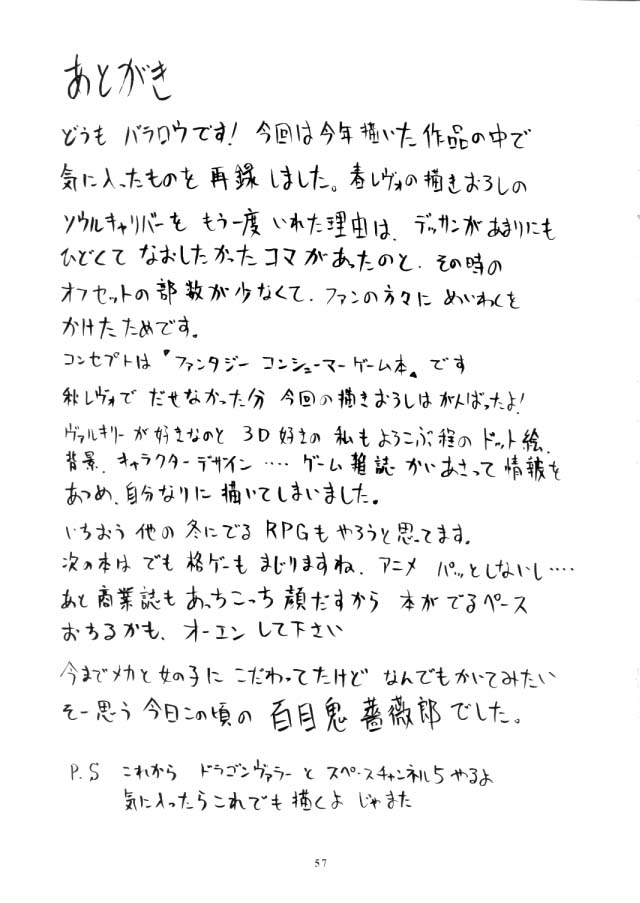 あとがき
どうも バラロウです! 今回は今年描いた作品の中で
気に入ったものを再録しました。春レヴォの描きおろしの
ソウルキャリバーを もう一度いれた理由は、デッサンがあまりにも
ひどくて なおしたかったコマがあったのと、その時の
オフセットの部数が少なくて、ファンの方々に めいわくを
かけたためです。
コンセプトは『ファンタジー コンシューマーゲーム本』です
秋レヴォで だせなかった分 今回の描きおろしはがんばったよ!
ヴァルキリーが好きなのと 3D好きの 私もよろこぶ程のドット絵、
背景、キャラクターデザイン‥‥ゲーム雑誌 かいあさって情報を
あつめ、自分なりに描いてしまいました。
いちおう他の冬にでるRPGもやろうと思ってます。
次の本はでも格ゲーもまじりますね、アニメ パッとしないし‥‥
あと商業誌もあっちこっち顔だすから 本がでるペース
おちるかも、オーエンして下さい
今までメカと女の子に こだわってたけど なんでもかいてみたい
そー思う今日この頃の 百目鬼薔薇郎でした。
P.S これから ドラゴンヴァラーと スペースチャンネル5やるよ
気に入ったらこれでも描くよ じゃまた
57